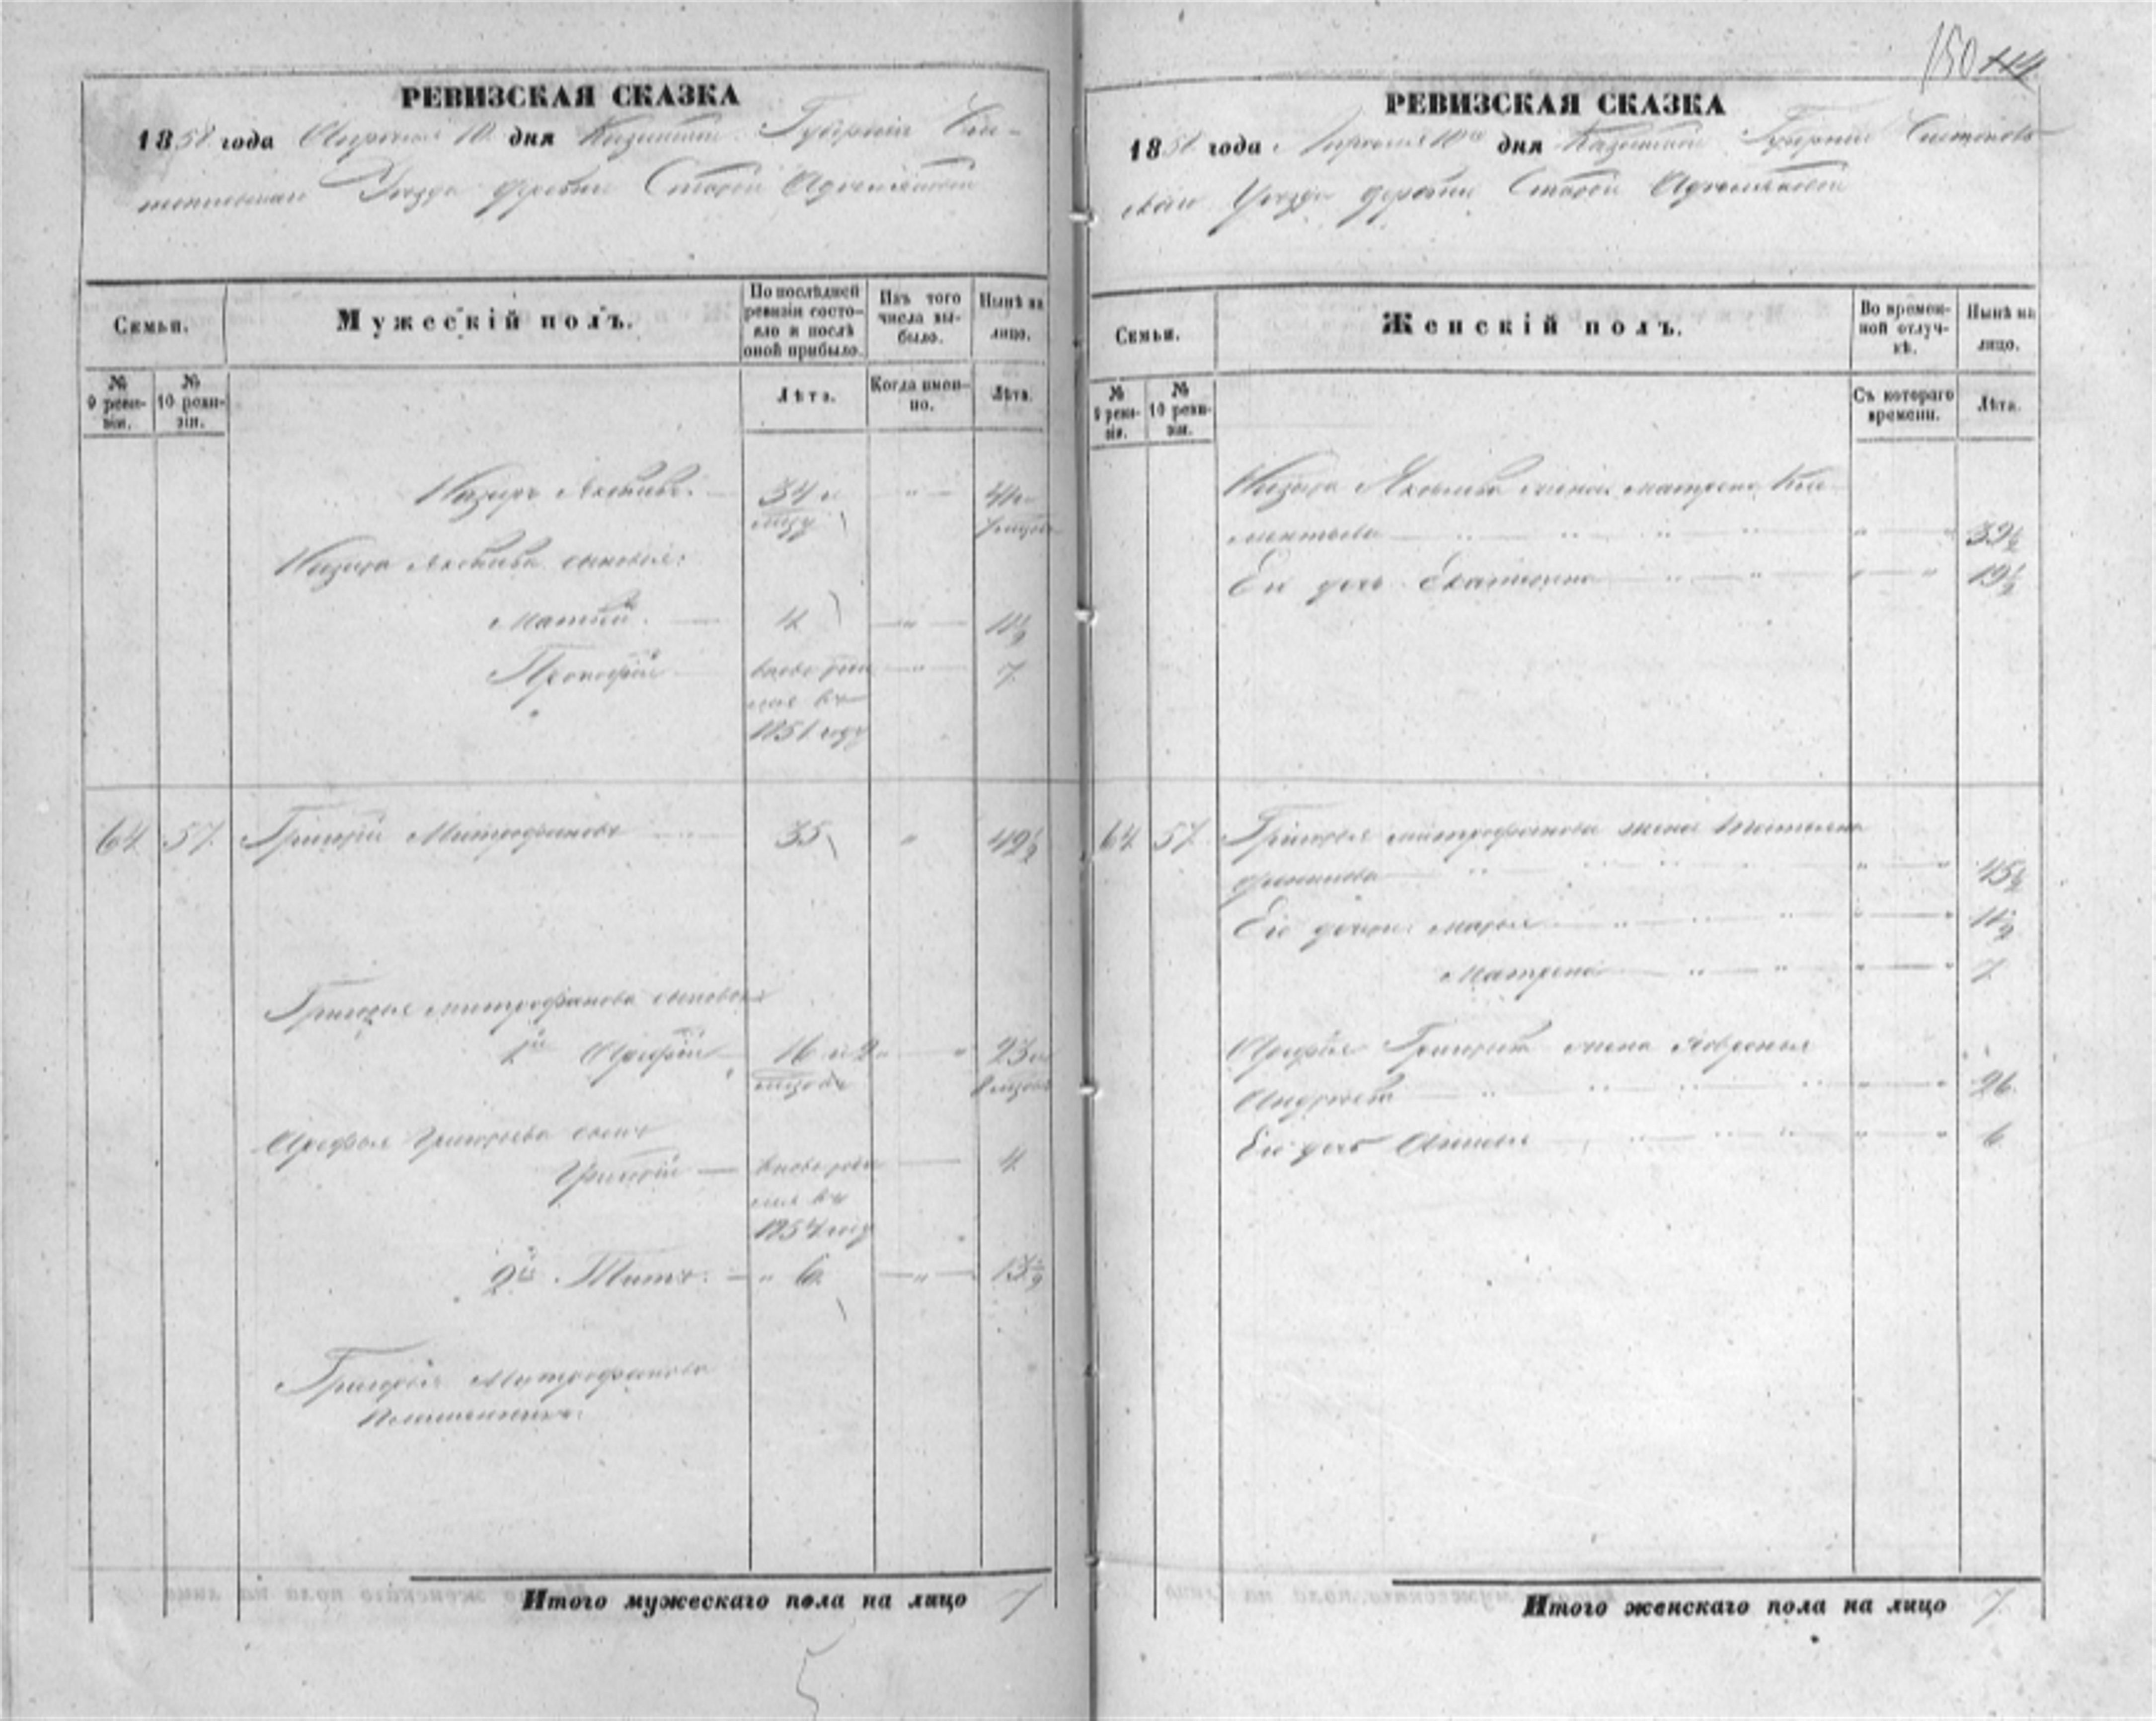 150 114
РЕВИЗСКАЯ СКАЗКА
1858 года Апреля 10 дня Казанской Губернiи Чис-
топольскаго Уезда деревни Старой Адельшиной
Семьи.
Мужескiй полъ.
По послѣдней ревизiи состо-яло и послѣ оной прибыло.
Изъ того числа вы-было.
Нынѣ на лицо.
№ 9 реви-зiи.
№ 10 реви-зiи.
Лѣта.
Когда имен-но.
Лѣта.
Назаръ Яковлевъ. 34 и
Назара Яковлева сыновья:
Матвей. 4 11½
Прокофiй вновь рож 7
1851 году
64 57 Григорiй Митрофановъ 35 " 42½
Григорья Митрофанова сыновья
1й Арефiй 16 и 23 и
Арефья Григорьева сынъ
Григорiй вновь рож 4
1854 году
2й Титъ. " 6 " 13½
Григорья Митрофанова
Итого мужескаго пола на лицо 7
5
РЕВИЗСКАЯ СКАЗКА
1858 года Апреля 10го дня Казанской Губернiи Чистополь
скаго Уезда деревни Старой Адельшиной
Семьи.
Женскiй полъ.
Во времен-ной отлуч-кѣ.
Нынѣ на лицо.
№ 9 реви-зiи.
№ 10 реви-зiи.
Съ котораго времени.
Лѣта.
Назара Яковлева жена Матрена Кле
ментьева 39½
Ея дочь Екатерина 19½
64 57 Григорья Митрофанова жена Татьяна
45½
Его дочери Марья 11½
Матрена 7
Арефья Григорьева жена
Андреева 26
Его дочь 6
Итого женскаго пола на лицо 7